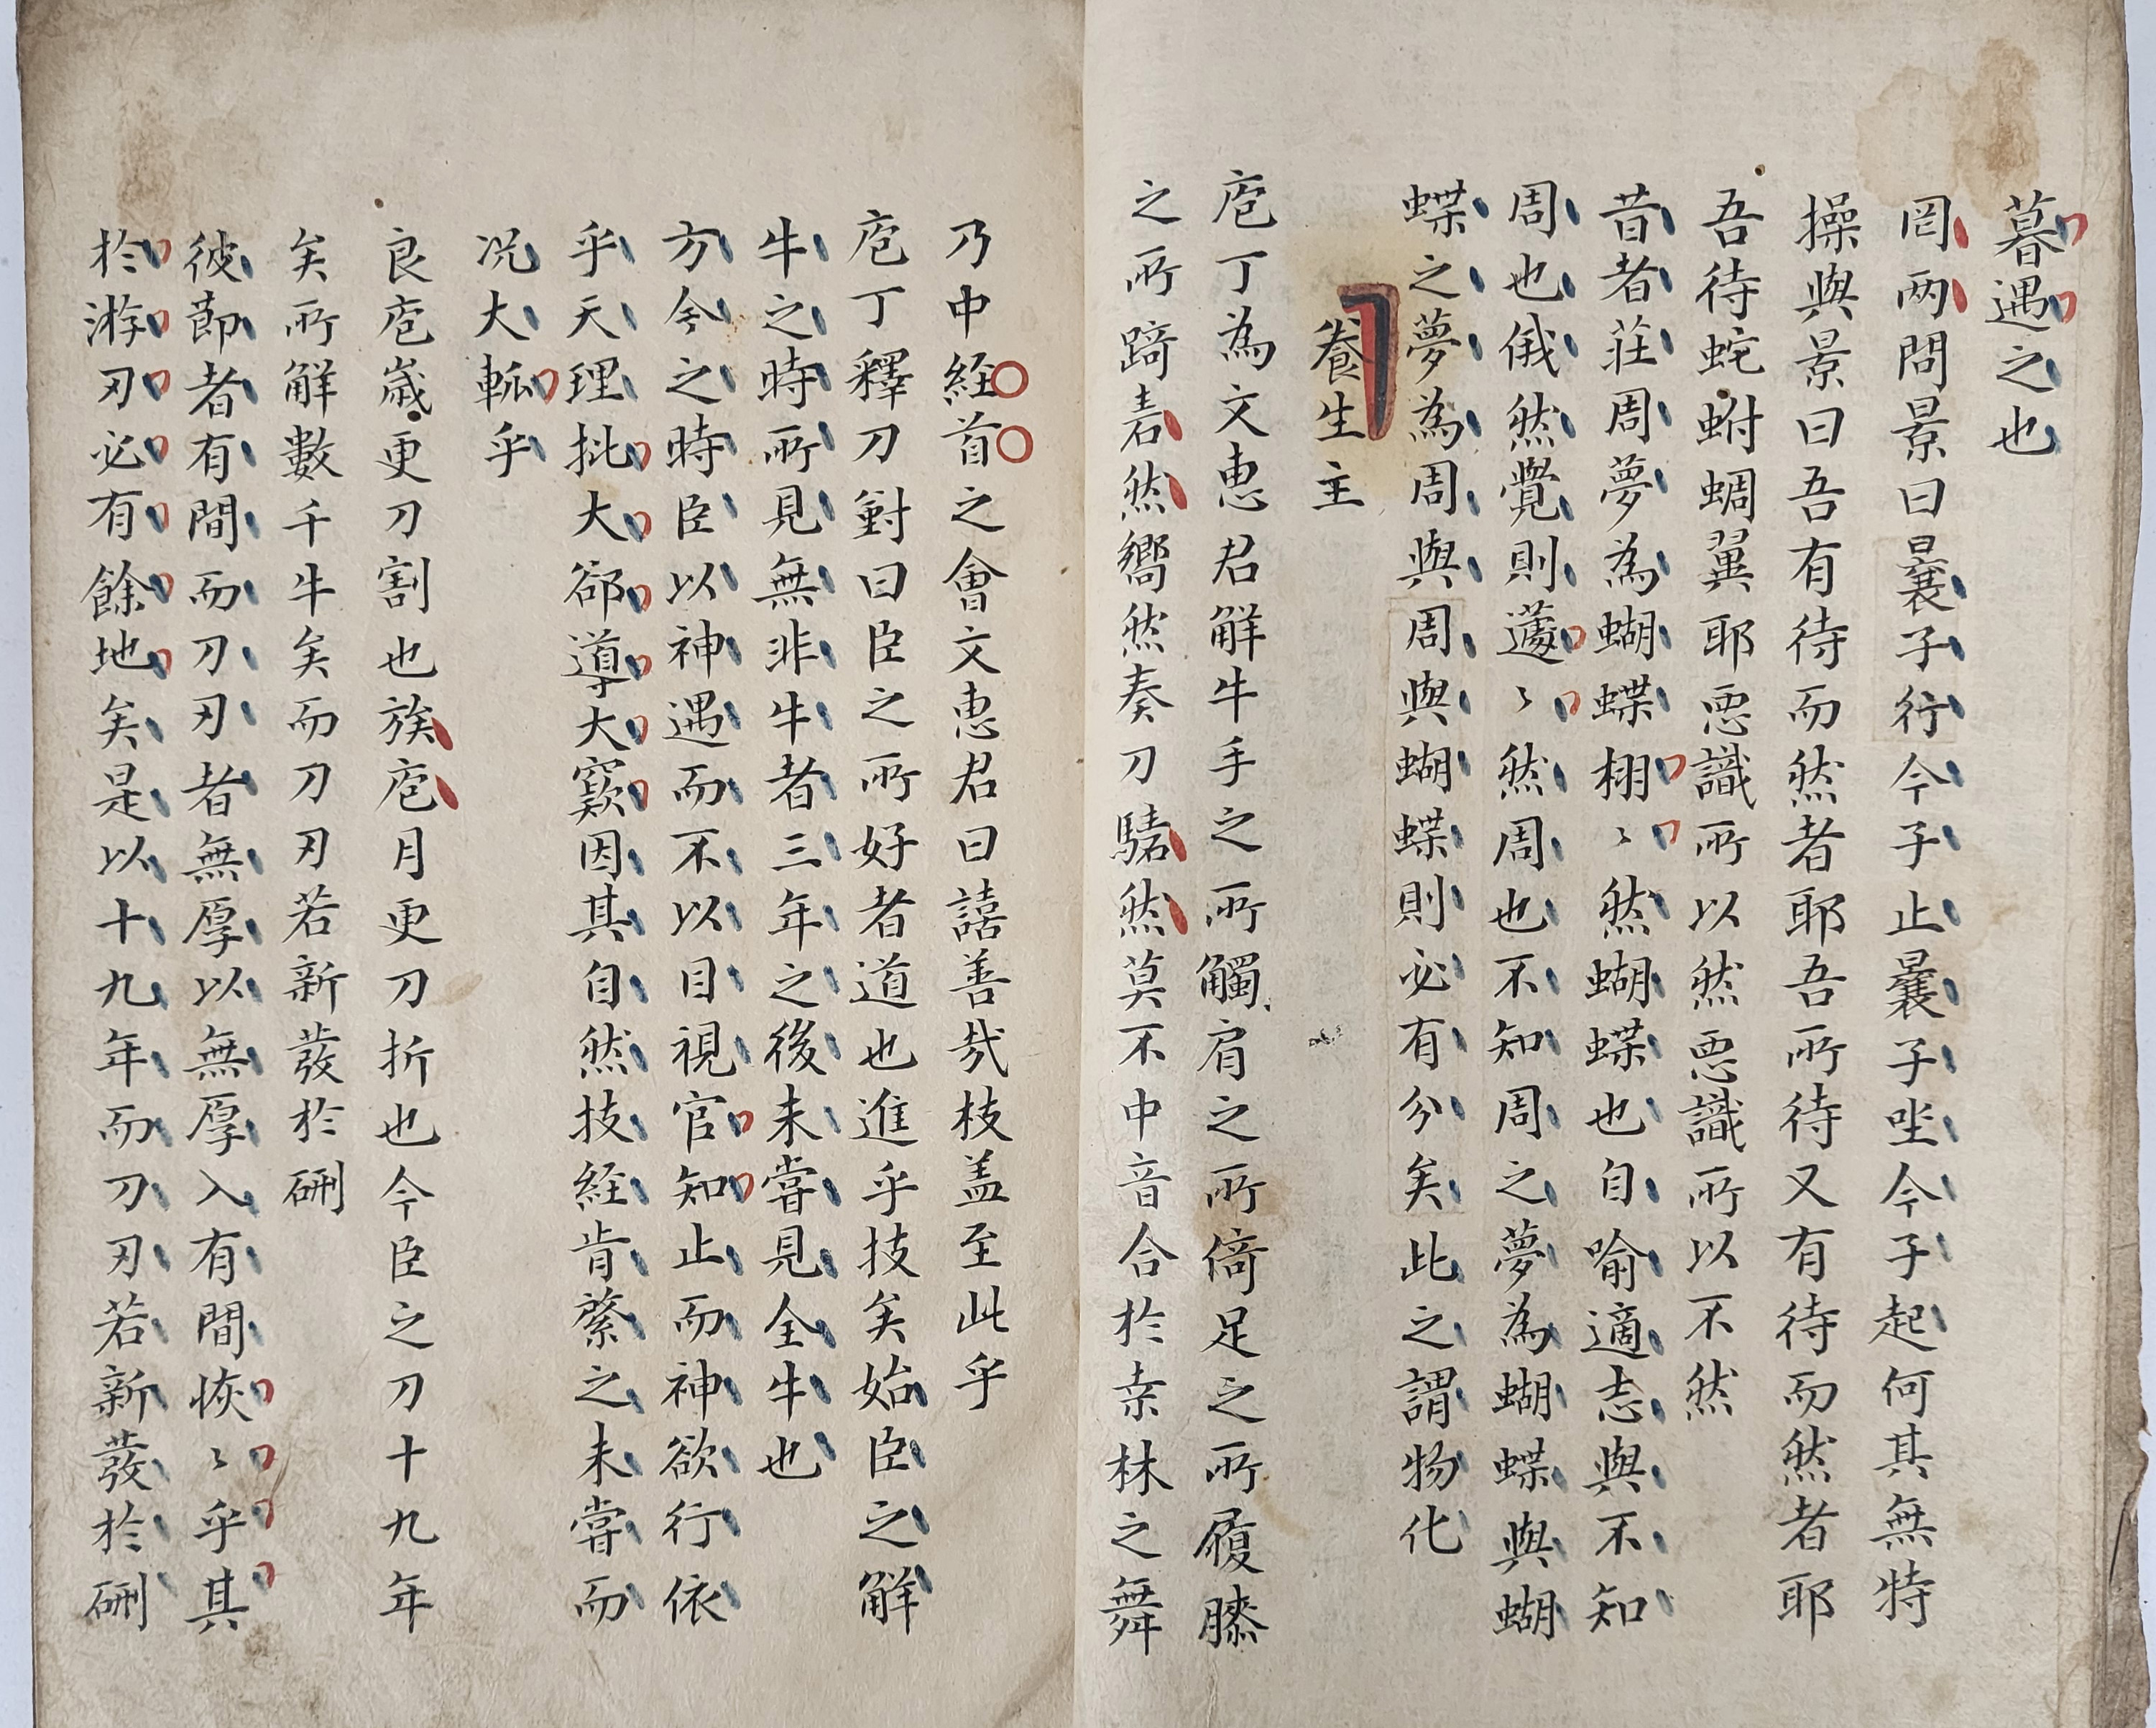 暮遇之也
罔两問景曰曩子行今子止曩子坐今子起何其無特
操與景曰吾有待而然者耶吾所待又有待而然者耶
吾待蛇蚹蜩翼耶悪識所以然悪識所以不然
昔者莊周夢為蝴蝶栩〻然蝴蝶也自喻適志與不知
周也俄然覺則蘧〻然周也不知周之夢為蝴蝶與蝴
蝶之夢為周與周與蝴蝶則必有分矣此之謂物化
養生主
庖丁為文惠君觧牛手之所觸肩之所倚足之所履膝
之所踦砉然嚮然奏刀騞然莫不中音合於桒林之舞
乃中経首之會文惠君曰譆善哉枝盖至此乎
庖丁釋刀對曰臣之所好者道也進乎技矣始臣之觧
牛之時所見無非牛者三年之後未嘗見全牛也
方今之時臣以神遇而不以目視官知止而神欲行依
乎天理批大郤導大窾因其自然技経肯綮之未嘗而
况大軱乎
良庖歲更刀割也族庖月更刀折也今臣之刀十九年
矣所觧數千牛矣而刀刃若新發於硎
彼節者有間而刀刃者無厚以無厚入有間恢〻乎其
於游刃必有餘地矣是以十九年而刀刃若新發於硎